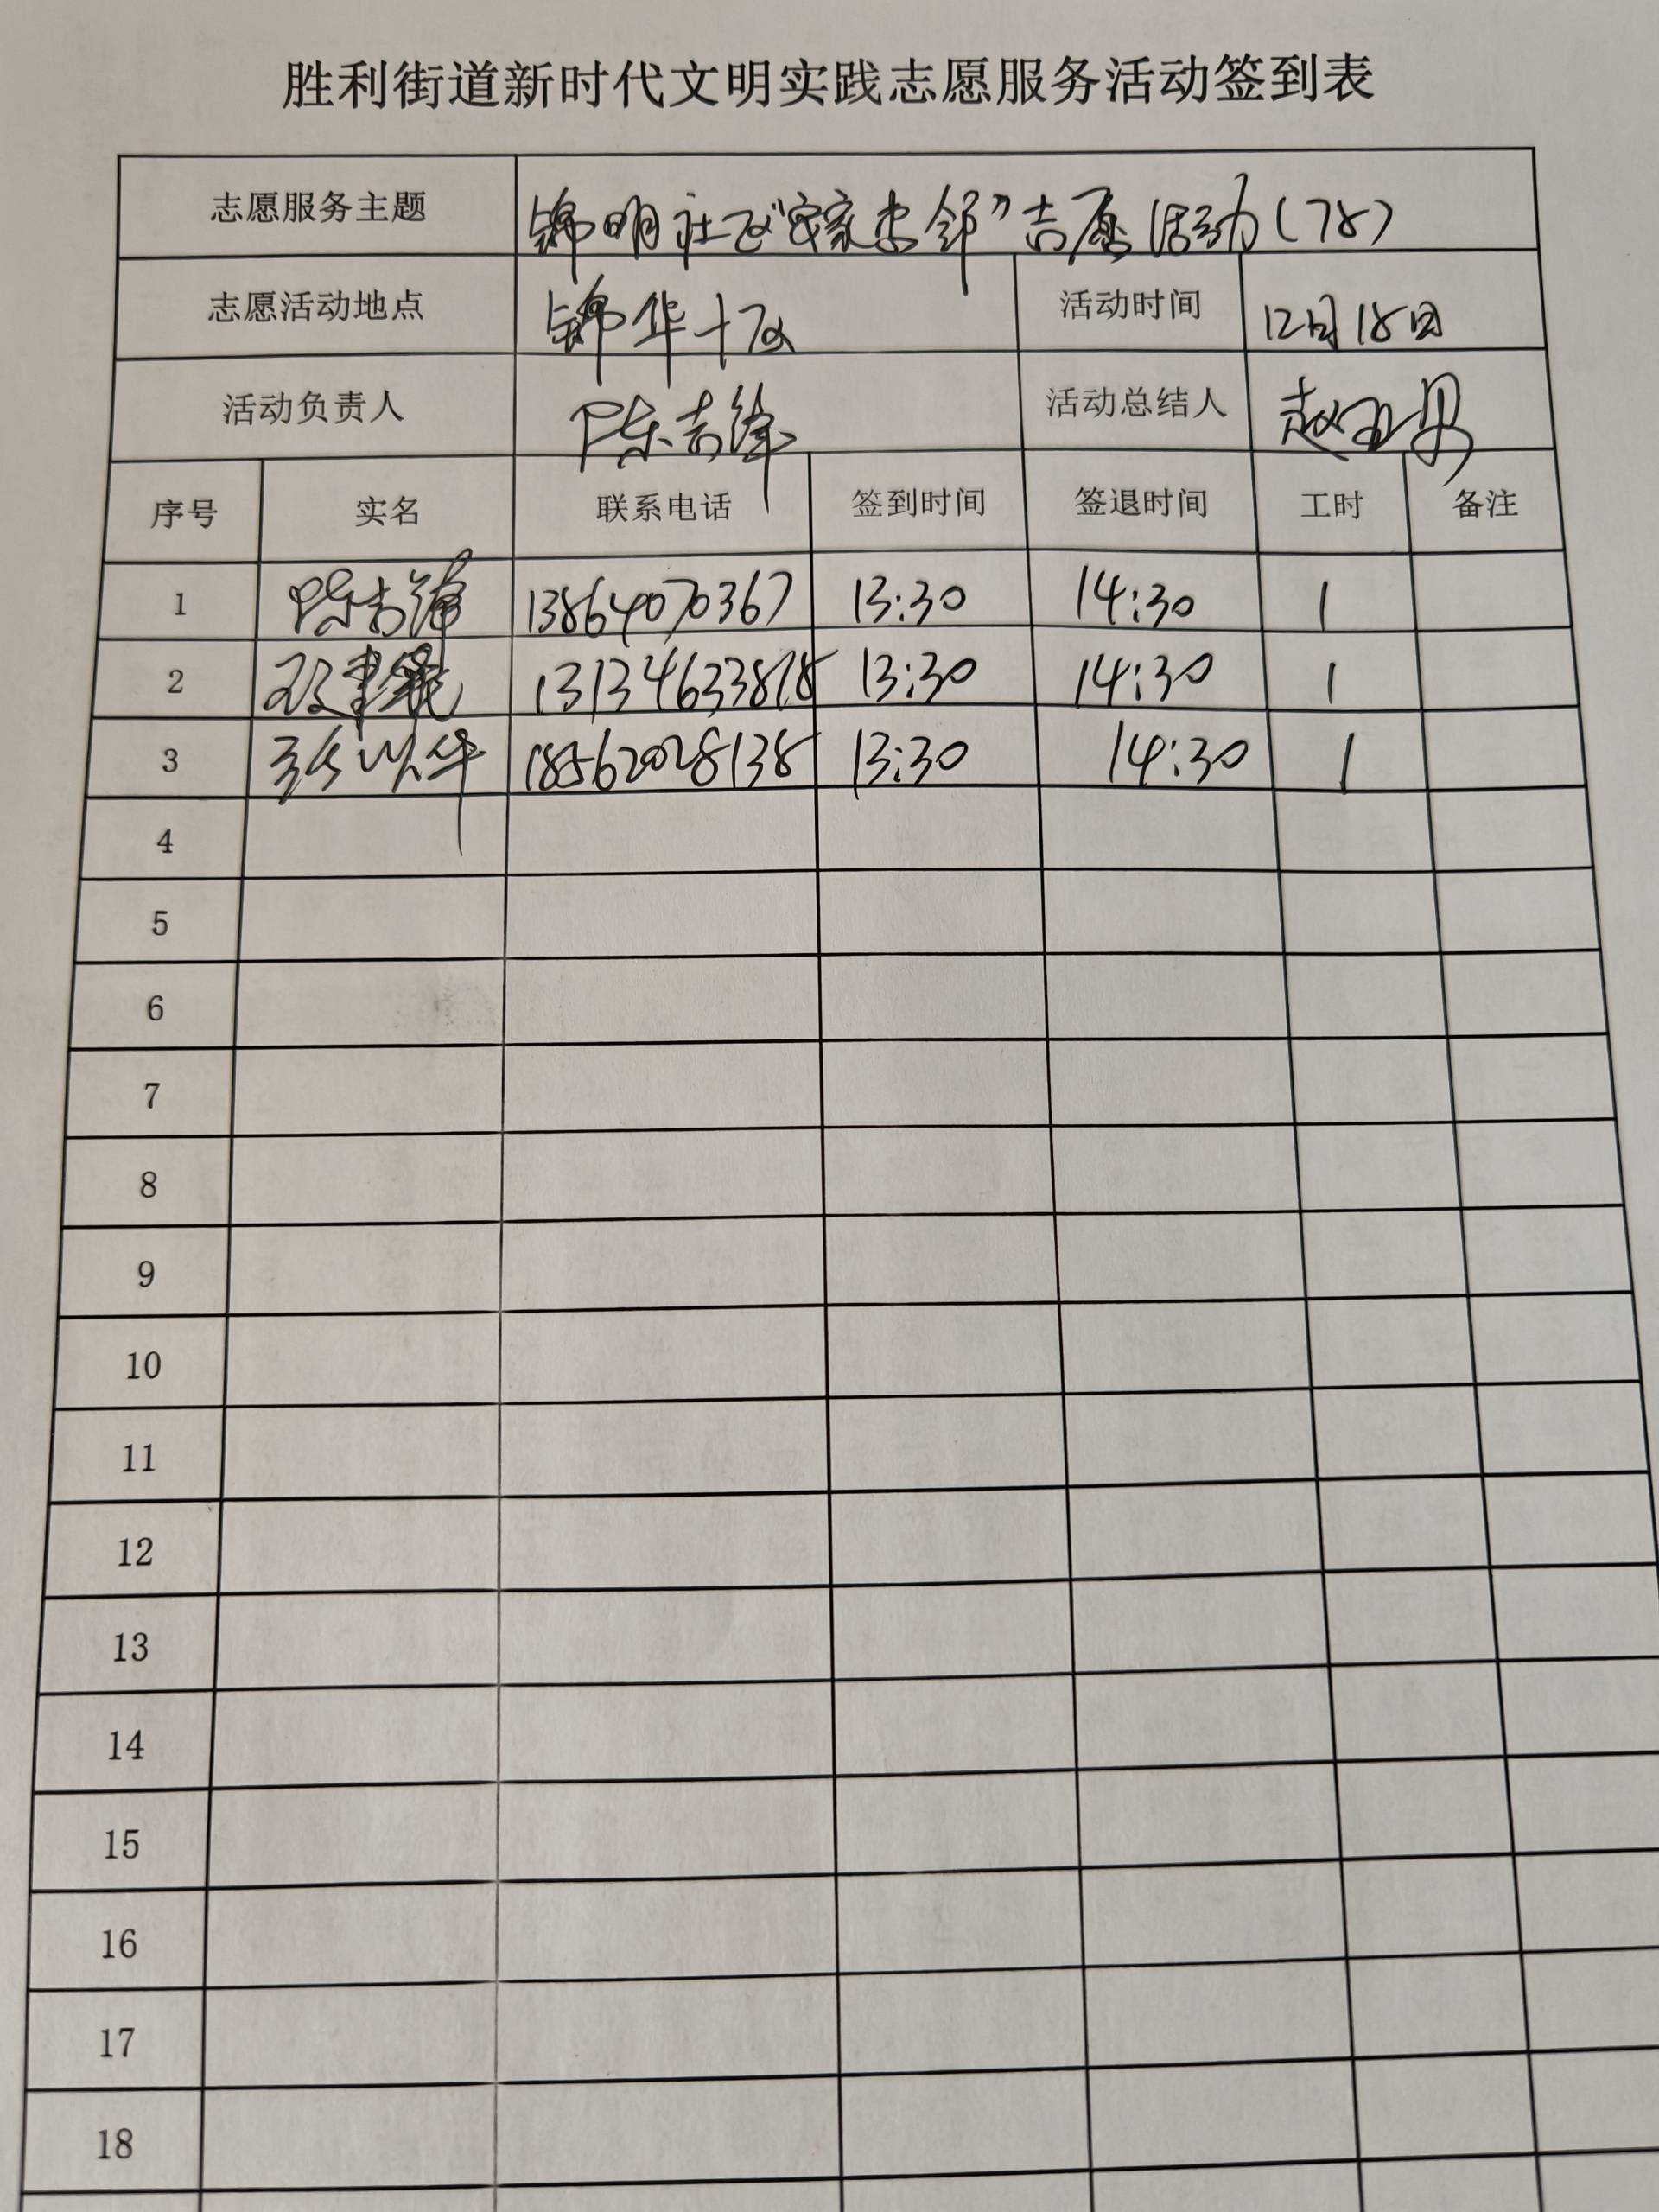 胜利街道新时代文明实践志愿服务活动签到表
志愿服务主题 锦明社区“安家李邻”志愿活动(78)
志愿活动地点 锦华十区 活动时间 12月18日
活动负责人 陈志锋 活动总结人 赵亚男
序号 实名 联系电话 签到时间 签退时间 工时 备注
1 陈志 13864070367 13:30 14:30 1
2 13:30 14:30 1
3 以华 18562028138 13:30 14:30 1
4
5
6
7
8
9
10
11
12
13
14
15
16
17
18